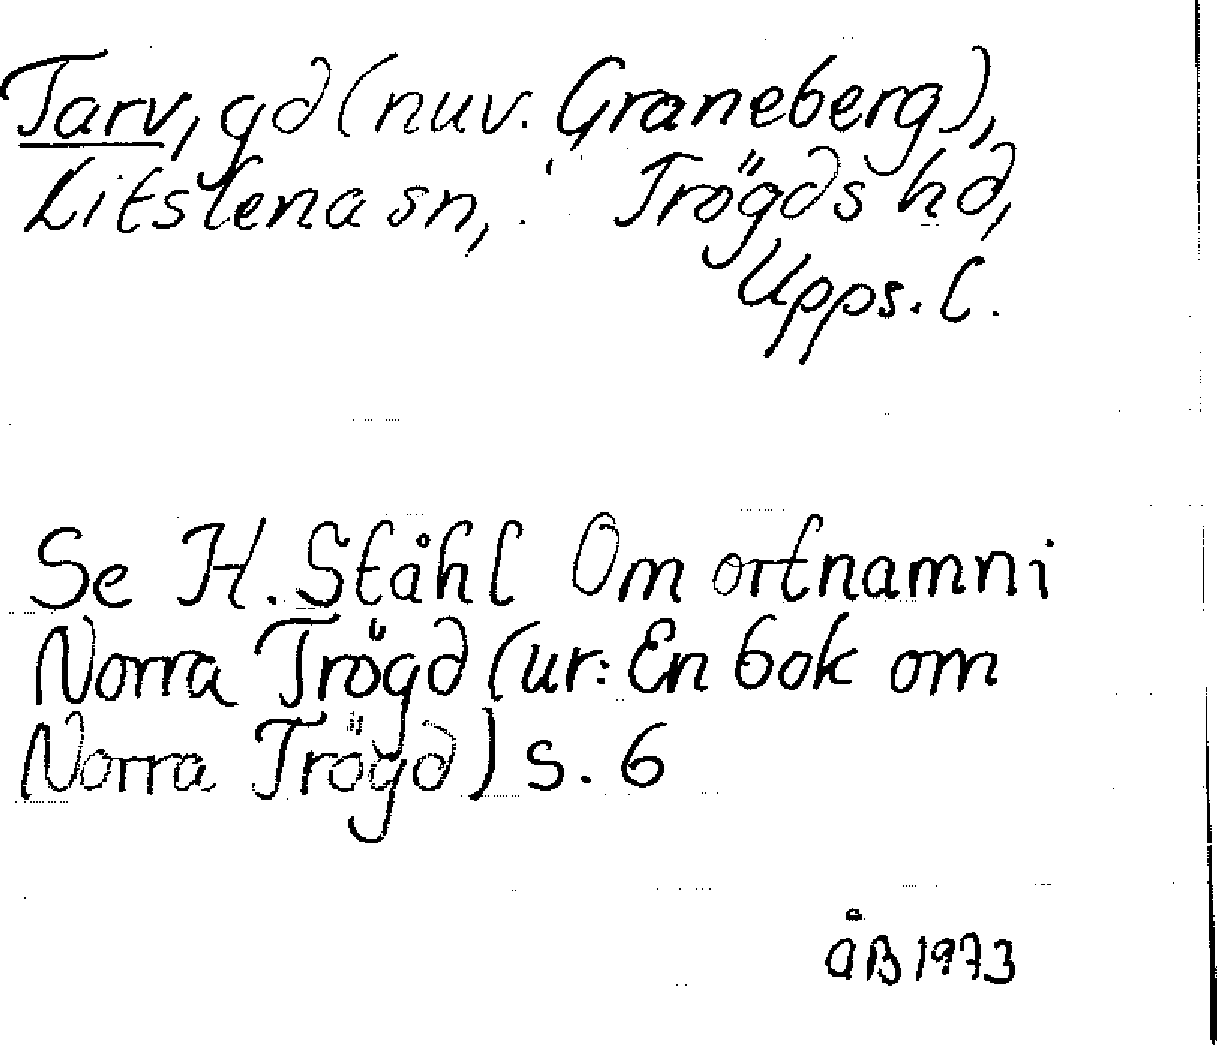 Tarv, gd (nuv. Graneberg),
Litslena sn, Trögds hd,
Upps. l.
Se H. Ståhl Om ortnamn i
Norra Trögd (ur: En bok om
Norra Trögd) s. 6
ÅB 1973